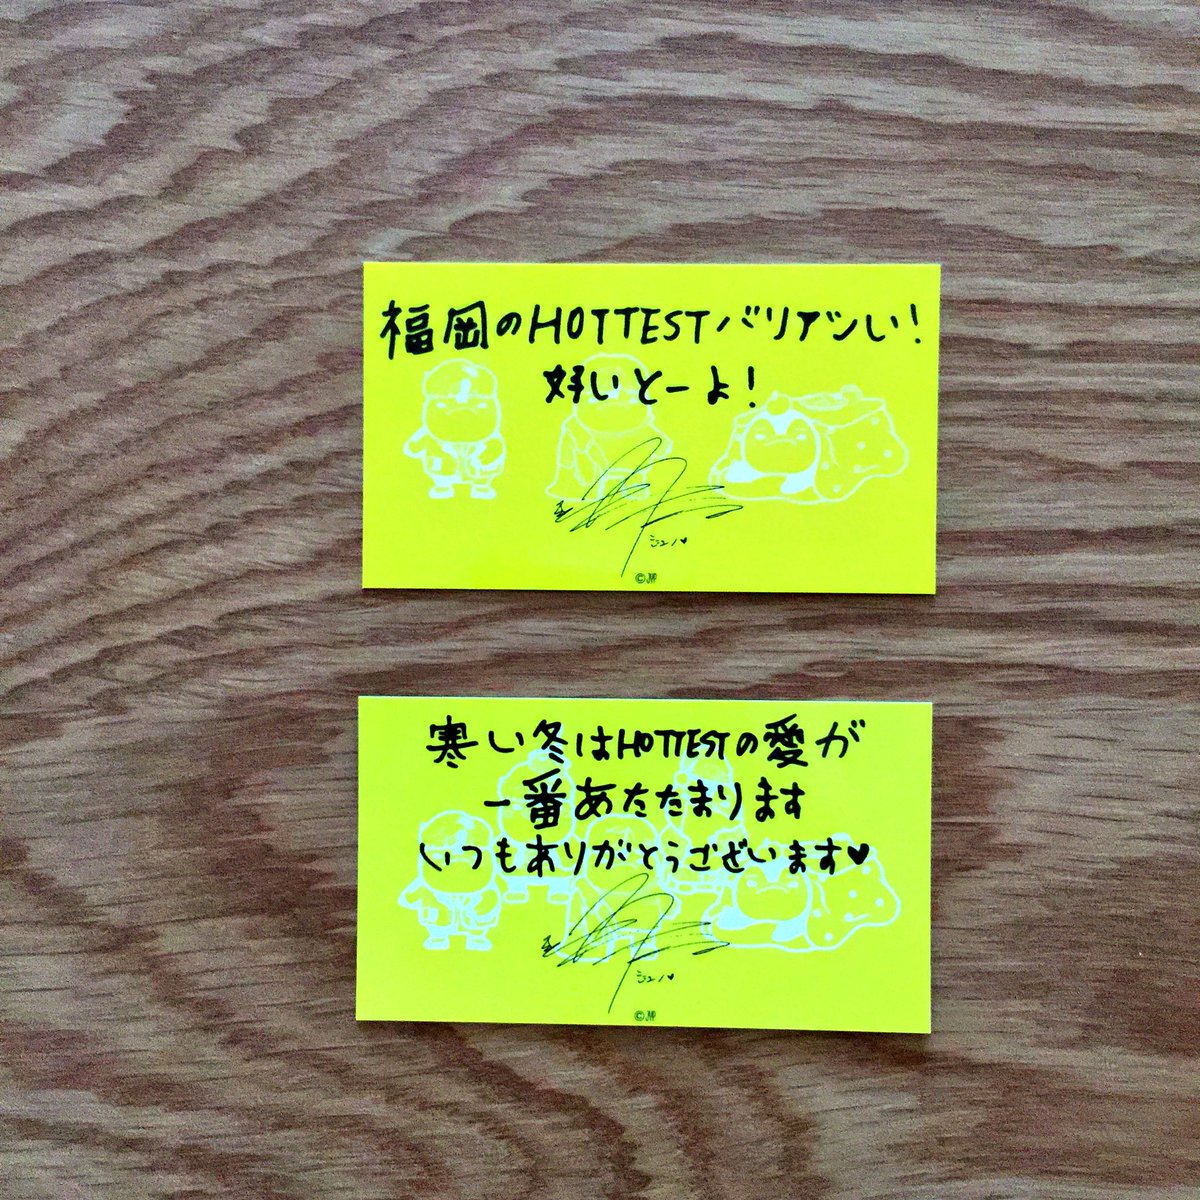 福岡のHOTTESTバリアツい!
好いとーよ!
ジュノ♥
©JYP
寒い冬はHOTTESTの愛が
一番あたたまります
いつもありがとうございます♥
ジュノ♥
©JYP